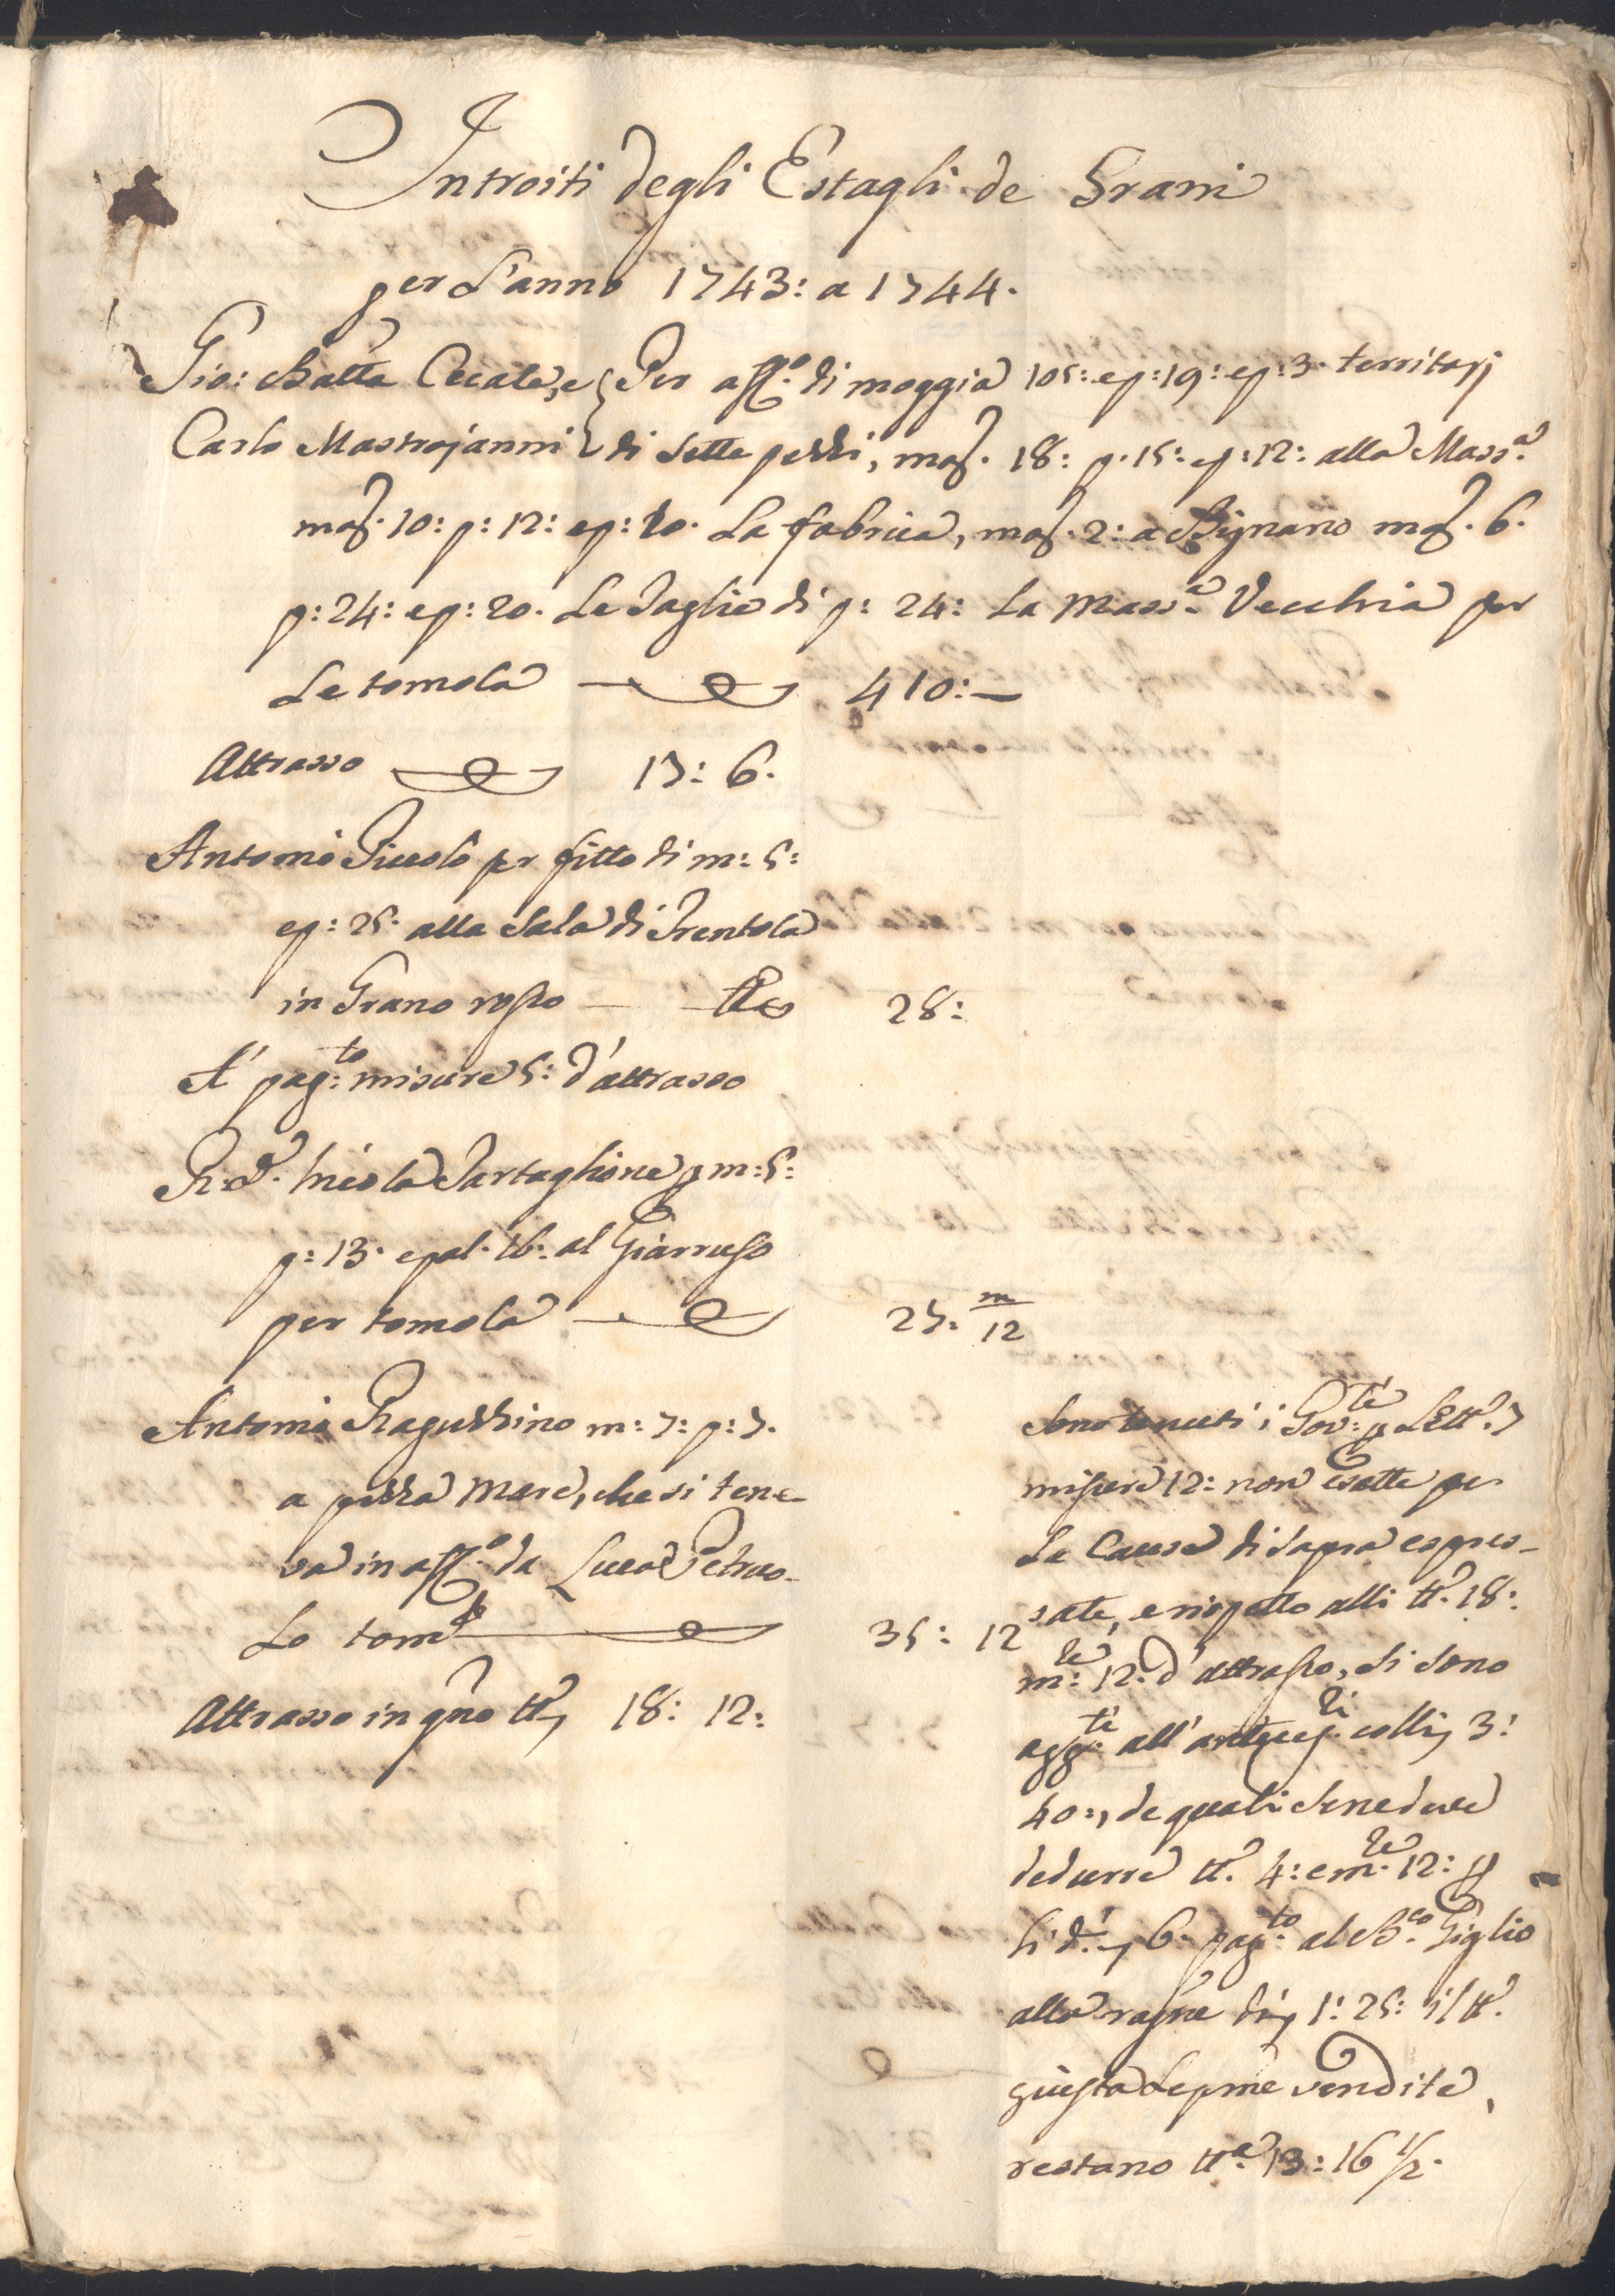 Introiti degli Estagli de Grani
per L'anno 1743: a 1744.
Gio: Batta Cecale, e Per aff.o di moggia 105: ep: 19: ep: 3. territorj
Carlo Mastrojanni di Sette pezzi, mog. 18: p. 15: ep: 12: alla Mass.a
mog. 10: p: 12: ep: 20. La fabrica, mog. 2: a Bignano mog. 6.
p: 24: ep: 20. Le Taglie di p: 24: La Mass.a Vecchia per
Le tomola 410: —
Attrasso 17: 6.
Antonio Piccolo per fitto di m: 5:
ep: 25. alla Sala di Trentola
in Grano rosso — tt.a 28:
A' pag:to misure 5: d'attrasso
R. D. Nicola Tartaglione p m: 5:
p: 13. e pal. 16: al Giarruso
per tomola 27. m/12
Antonio Raguzzino m: 7: p: 7.
a pezza mare, che si tene-
va in aff.o da Luca Petruo-
Lo tom.la 35: 12
Attrasso in q'no tt.a 18: 12:
Sono tenuti i Gov:ti p Le tt.a 7
misure 12: non esatte per
La Causa di sopra espres-
sate, e rispetto alli tt.a 18:
m:re 12: d'attrasso, si sono
agg:ti all' antecep:ti colli 3:
40:, de quali sene deve
dedurre tt.a 4: e m:re 12: p
li d.i 6. pag:to al B.co Giglio
alla rag'ne di 1: 25: il tt.o
giusta Le p'me vendite,
restano tt.a 13: 16 1/2.